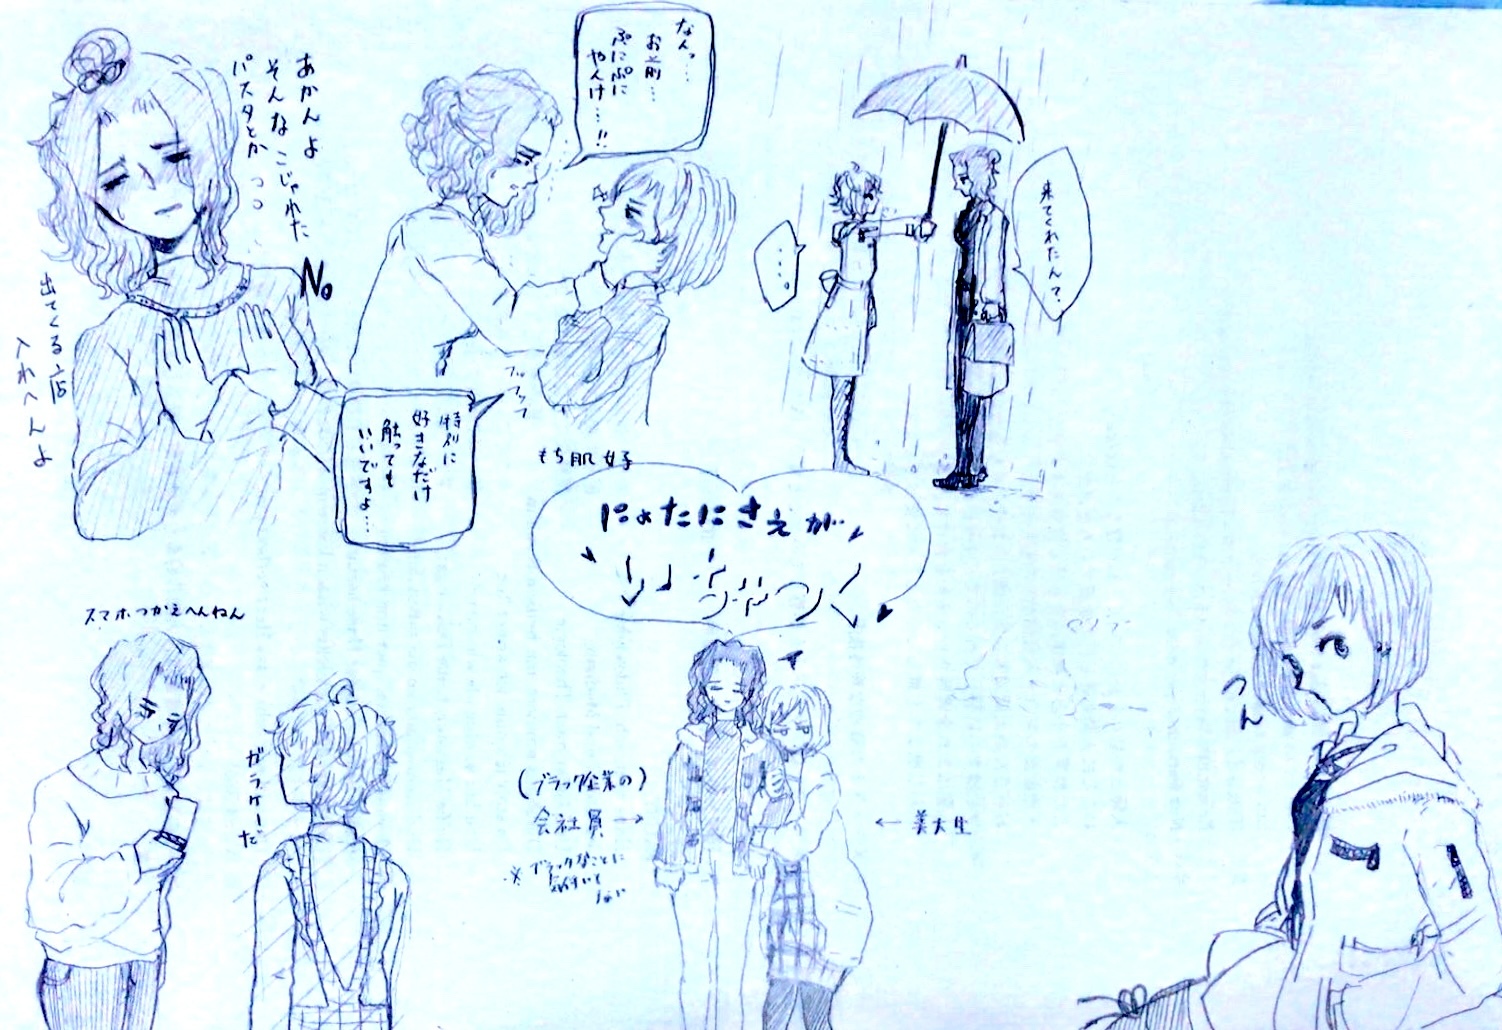 あかんよ
そんな こじゃれた
パスタとか
No
出てくる店
入れへんよ
なんっ…
お前…
ぷにぷに
やんけ…!!
来てくれたんて、
…。
特別に
好きなだけ
触っても
いいですよ…
フッフッフ
もち肌女子
にょたにさえが
スマホつかえへんねん
ガラケーだ
(ブラック企業の)
会社員→
※ブラックなことに
気付いて
ない
←美大生
つん